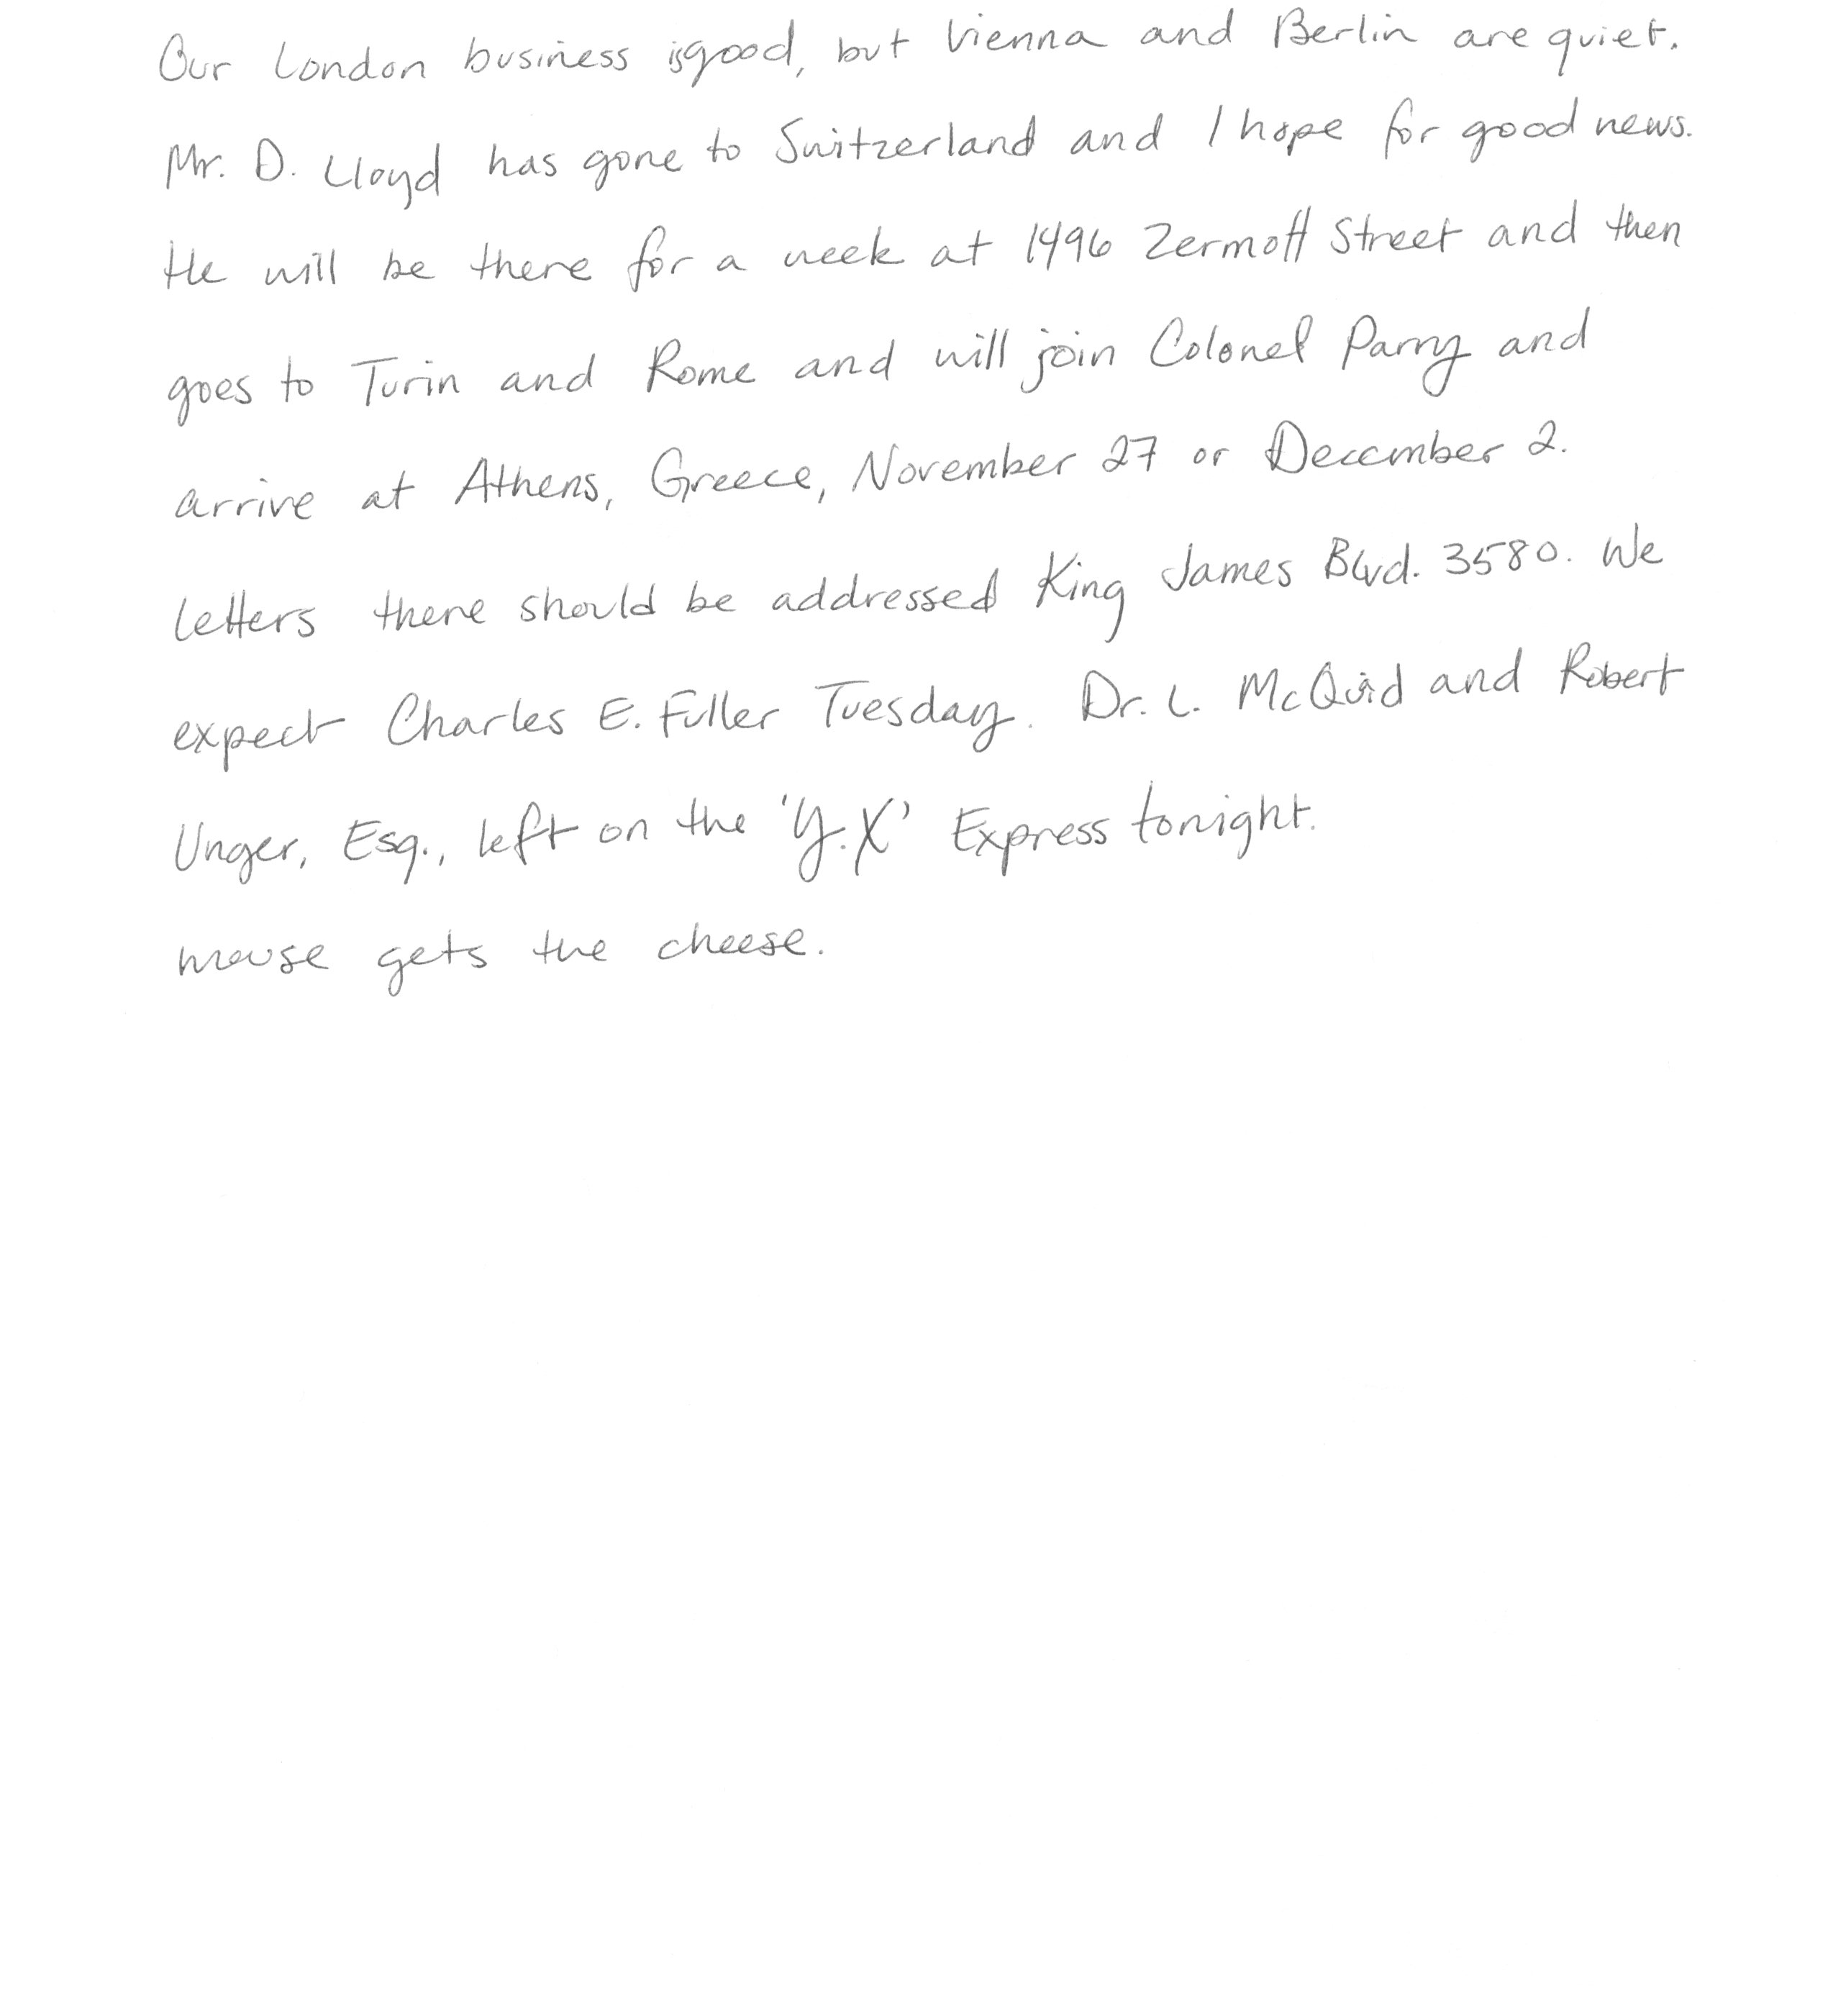 Our London business is good, but Vienna and Berlin are quiet.
Mr. D. Lloyd has gone to Switzerland and I hope for good news.
He will be there for a week at 1496 Zermott Street and then
goes to Turin and Rome and will join Colonel Parry and
arrive at Athens, Greece, November 27 or December 2.
Letters there should be addressed King James Blvd. 3580. We
expect Charles E. Fuller Tuesday. Dr. L. McQuid and Robert
Unger, Esq., left on the 'Y.X' Express tonight.
mouse gets the cheese.